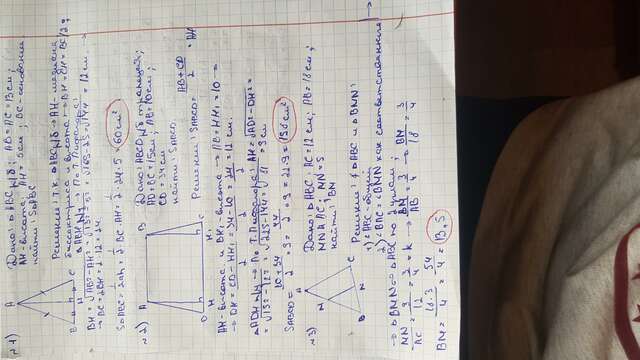 №1)
Дано: △ABC р/б; AB = AC = 13 см;
AH - высота, AH = 5 см; BC - основание
найти: S△ABC
A
B
H
C
Решение: т.к △ABC р/б → AH - медиана
биссектриса и высота → BH = CH = BC/2
△ABH п/у → По т. Пифагора:
BH = √AB² - AH² = √13² - 5² = √169 - 25 = √144 = 12 см. →
→ BC = 2BH = 2 · 12 = 24.
S△ABC = 1/2 ah = 1/2 · BC · AH = 1/2 · 24 · 5 = 60 см²
№2)
Дано: ABCD р/б трапеция;
AD = BC = 15 см; AB = 10 см;
CD = 34 см
найти: SABCD
A
B
D
H
H₁
C
Решение: SABCD = AB + CD / 2 · AH
AH - высота и BH₁ - высота → AB = HH₁ = 10 →
→ DH = CD - HH₁ / 2 = 34 - 10 / 2 = 24 / 2 = 12 см.
△ADH п/у → По т. Пифагора: AH = √AD² - DH² =
= √15² - 12² = √225 - 144 = √81 = 9 см
SABCD = 10 + 34 / 2 · 9 = 44 / 2 · 9 = 22 · 9 = 198 см²
№3)
Дано: △ABC; AC = 12 см; AB = 18 см;
MN ∥ AC; MN = 9
найти: BM
A
B
C
N
Решение: △ABC и △BMN:
1) ∠ABC - общий
2) ∠BAC = ∠BMN как соответственные →
→ △BMN ∼ △ABC по 2 углам;
MN / AC = 9 / 12 = 3 / 4 = k → BM / AB = 3 / 4 → BM / 18 = 3 / 4
BM = 18 · 3 / 4 = 54 / 4 = 13,5